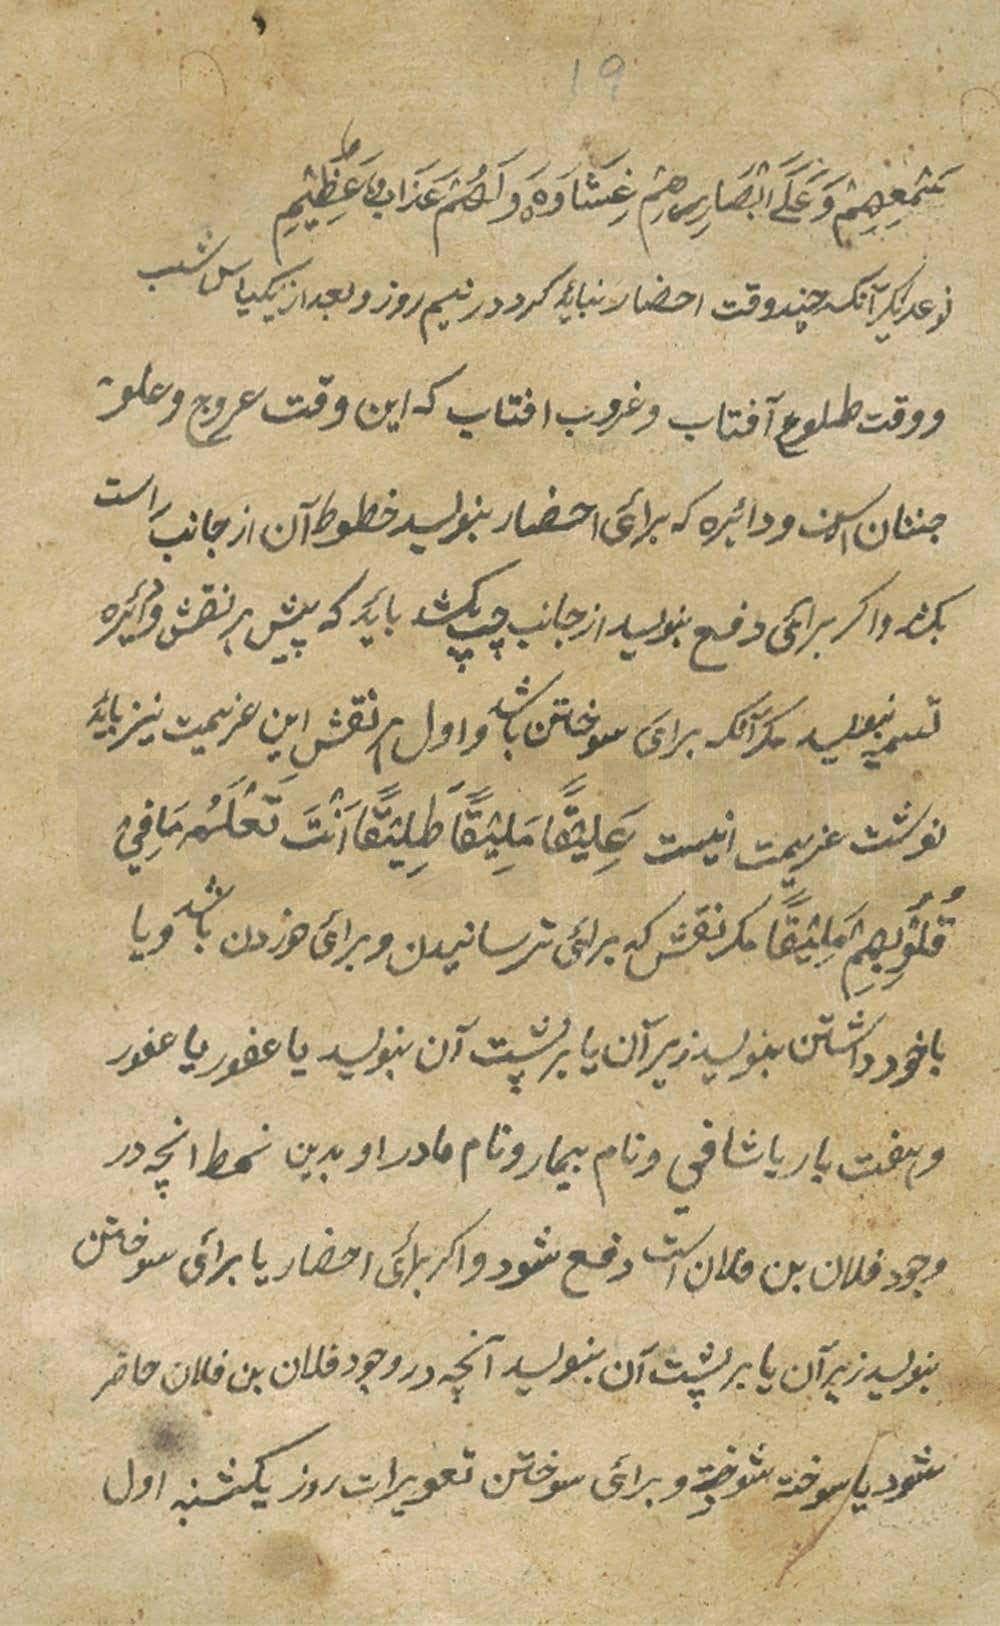 ۱۹
سَمْعِهِمْ وَعَلَىٰ اَبْصَارِهِمْ غِشَاوَةٌ وَلَهُمْ عَذَابٌ عَظِيْمٌ
نوعدیکر آنکه چند وقت احضار نباید کرد در نیم روز و بعد از یکپاس شب
و وقت طلوع آفتاب و غروب افتاب که این وقت عروج و علو
جنیان است و دائره که برائی احضار بنویسد خطوط آن از جانب راست
بکشد واکر برائی دفع بنویسد از جانب چپ بکشد باید که پیش هر نقش و دائره
تسمیه بنویسد مکر آنکه برای سوختن باشد و اول هر نقش این عزیمت نیز باید
نوشت عزیمت اینست عَلِيْقًا مَلِيْقًا طَلِيْقًا اَنْتَ تَعْلَمُ مَا فِيْ
قُلُوْبِهِمْ مَلِيْقًا مکر نقش که برائی ترسانیدن و برائی خوردن باشد و یا
باخود داشتن بنویسد زیر آن یا بر پشت آن بنویسد یا غفور یا غفور
و هفت بار یا شافي و نام بیمار و نام مادر او بدین نمط انچه در
وجود فلان بن فلان است دفع شود واکر برائی احضار یا برائی سوختن
بنویسد زیر آن یا بر پشت آن بنویسد آنچه در وجود فلان بن فلان حاضر
شود یا سوخته شود و برائی سوختن تعویرات روز یکشنبه اول